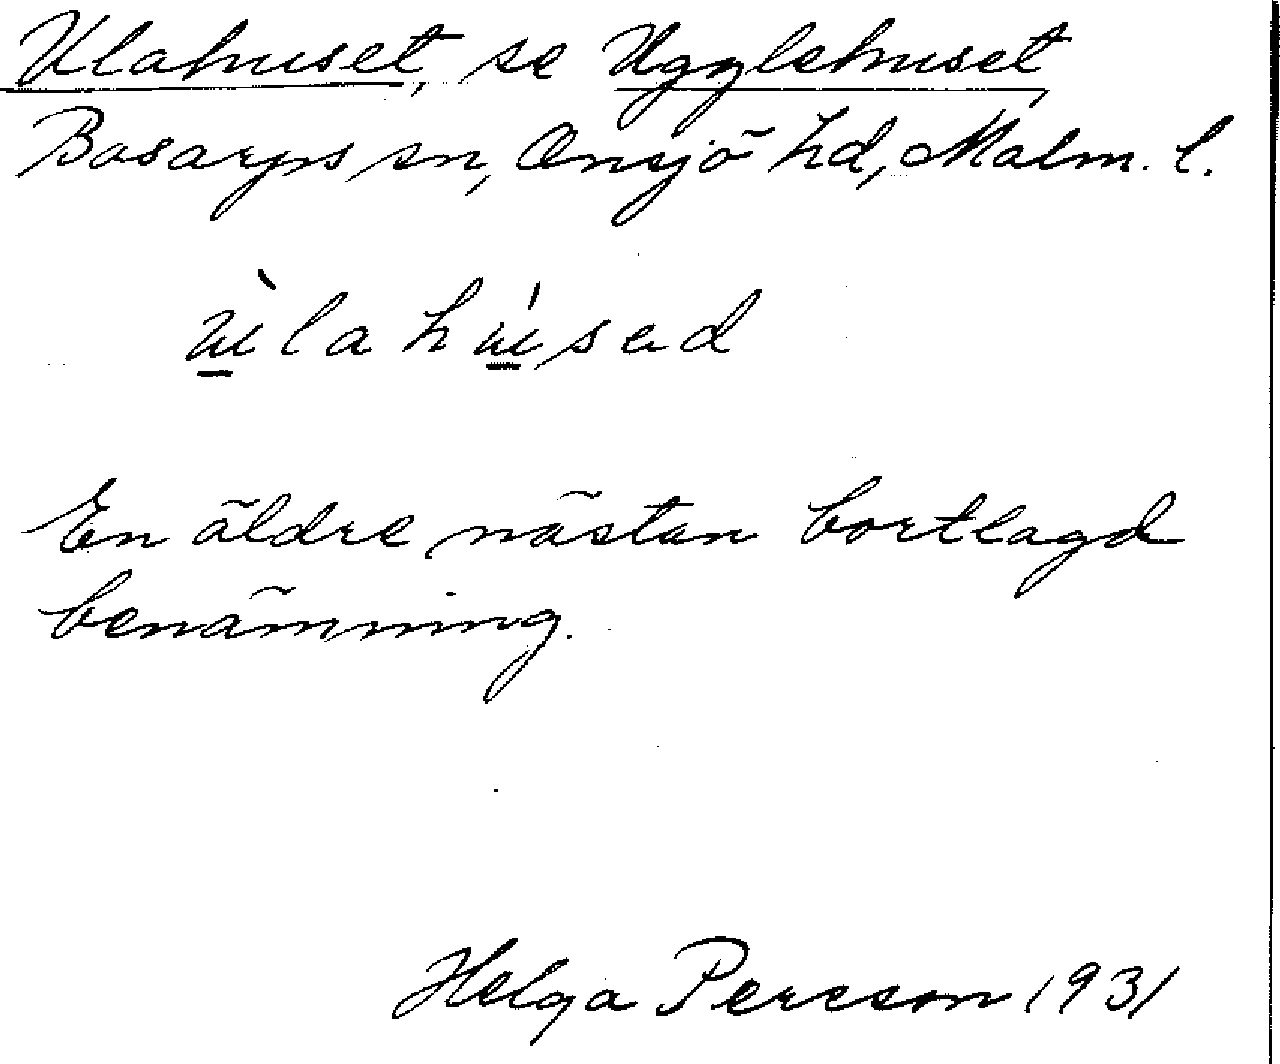 Ulahuset, se Ugglehuset
Bosarps sn, Onsjö hd, Malm. l.
ùlahúsad
En äldre nästan bortlagd
benämning.
Helga Persson 1931